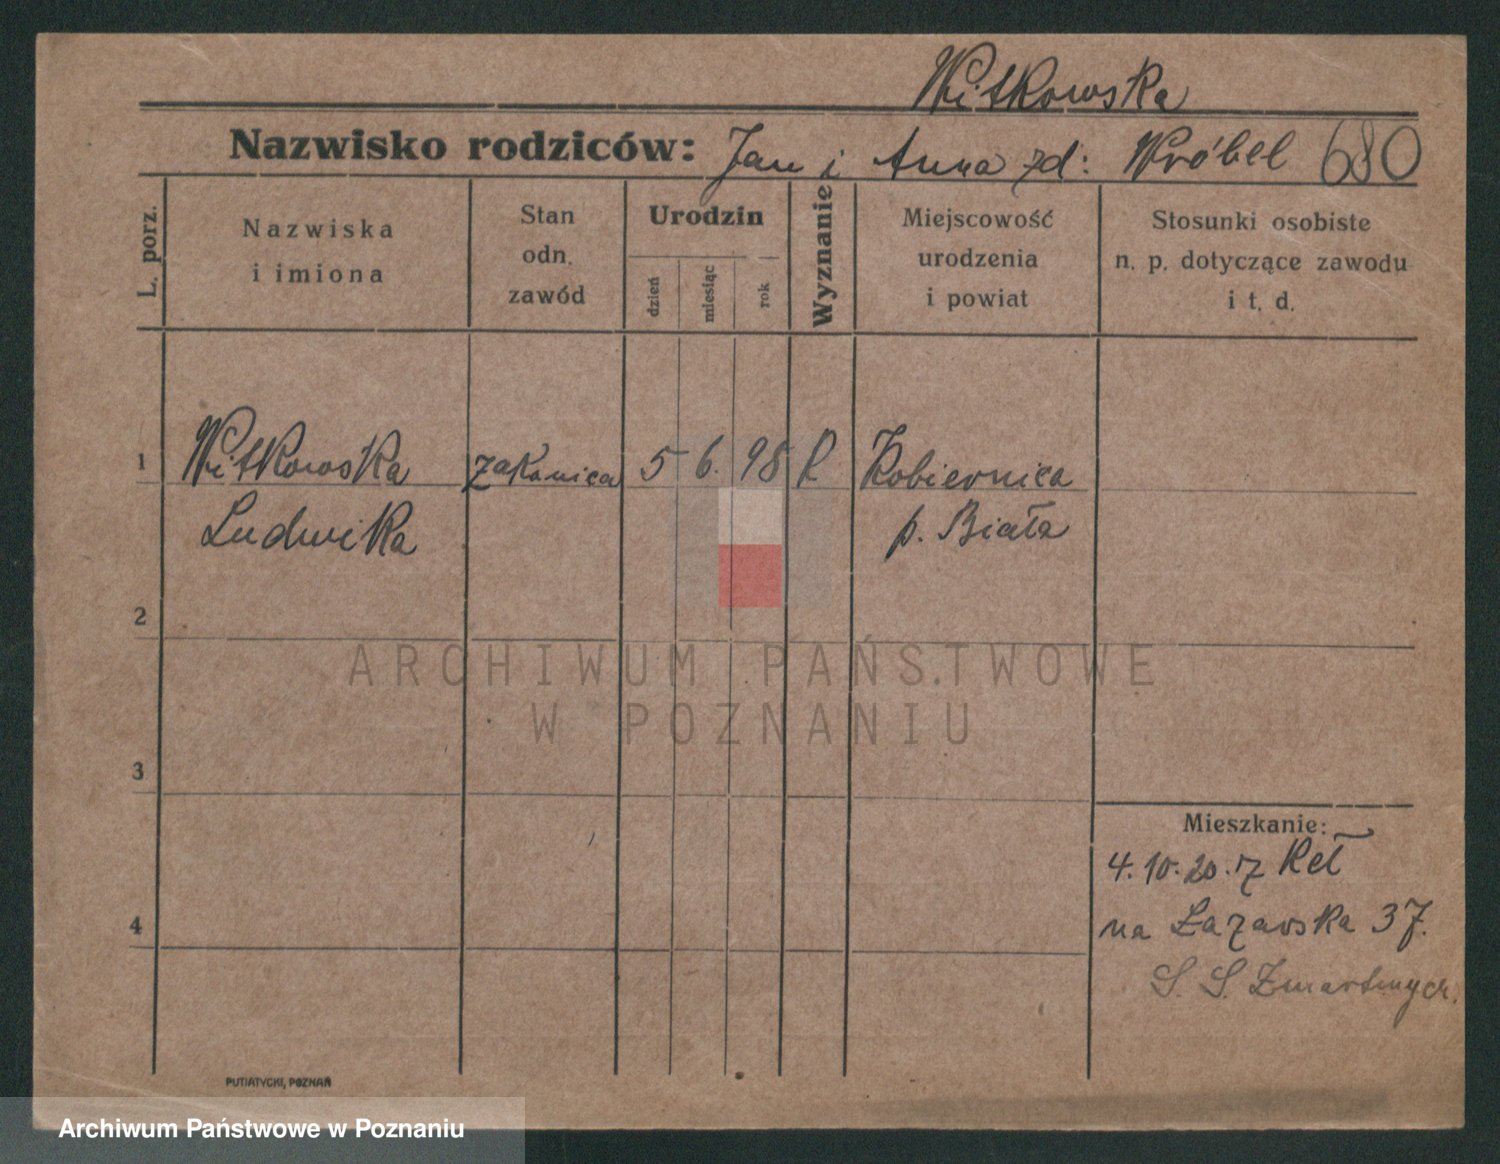 Witkowska
Nazwisko rodziców: Jan i Anna zd: Wróbel 680
L. porz.
Nazwiska
i imiona
Stan
odn.
zawód
Urodzin
dzień
miesiąc
rok
Wyznanie
Miejscowość
urodzenia
i powiat
Stosunki osobiste
n. p. dotyczące zawodu
i t. d.
1 Witkowska zakonica 5 6. 98 R Kobiernica
Ludwika p. Biała
2
ARCHIWUM PAŃSTWOWE
W POZNANIU
3
Mieszkanie:
4. 10. 20. z Kęt
na Łazarska 37.
S. S. Zmartwych.
4
PUTIATYCKI, POZNAŃ
Archiwum Państwowe w Poznaniu